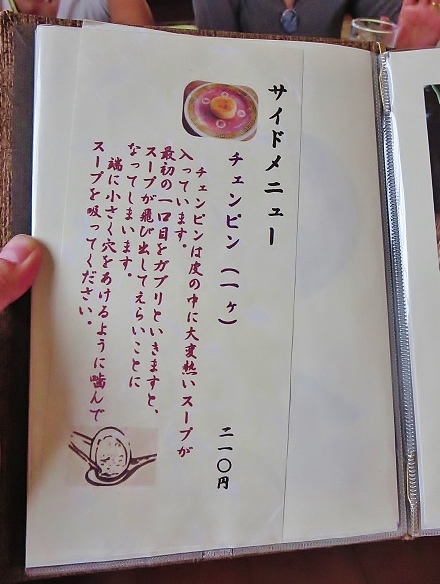 サイドメニュー
チェンピン（一ヶ）　二一〇円
チェンピンは皮の中に大変熱いスープが
入っています。
最初の一口目をガブリといきますと、
スープが飛び出してえらいことに
なってしまいます。
端に小さく穴をあけるように噛んで
スープを吸ってください。